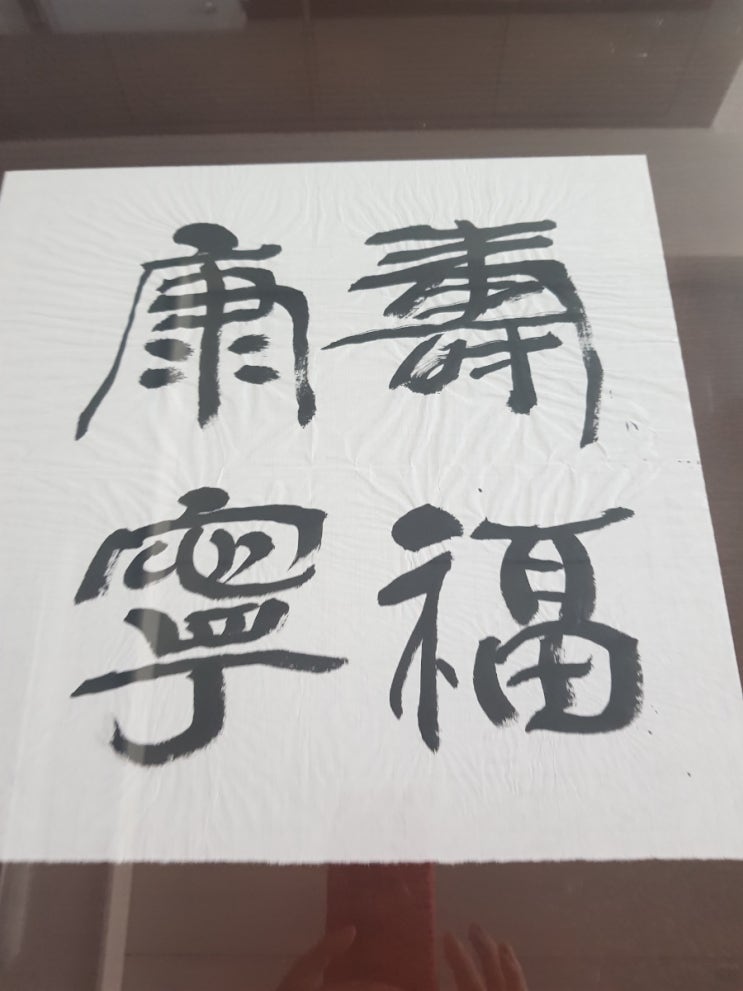 壽福
康寧